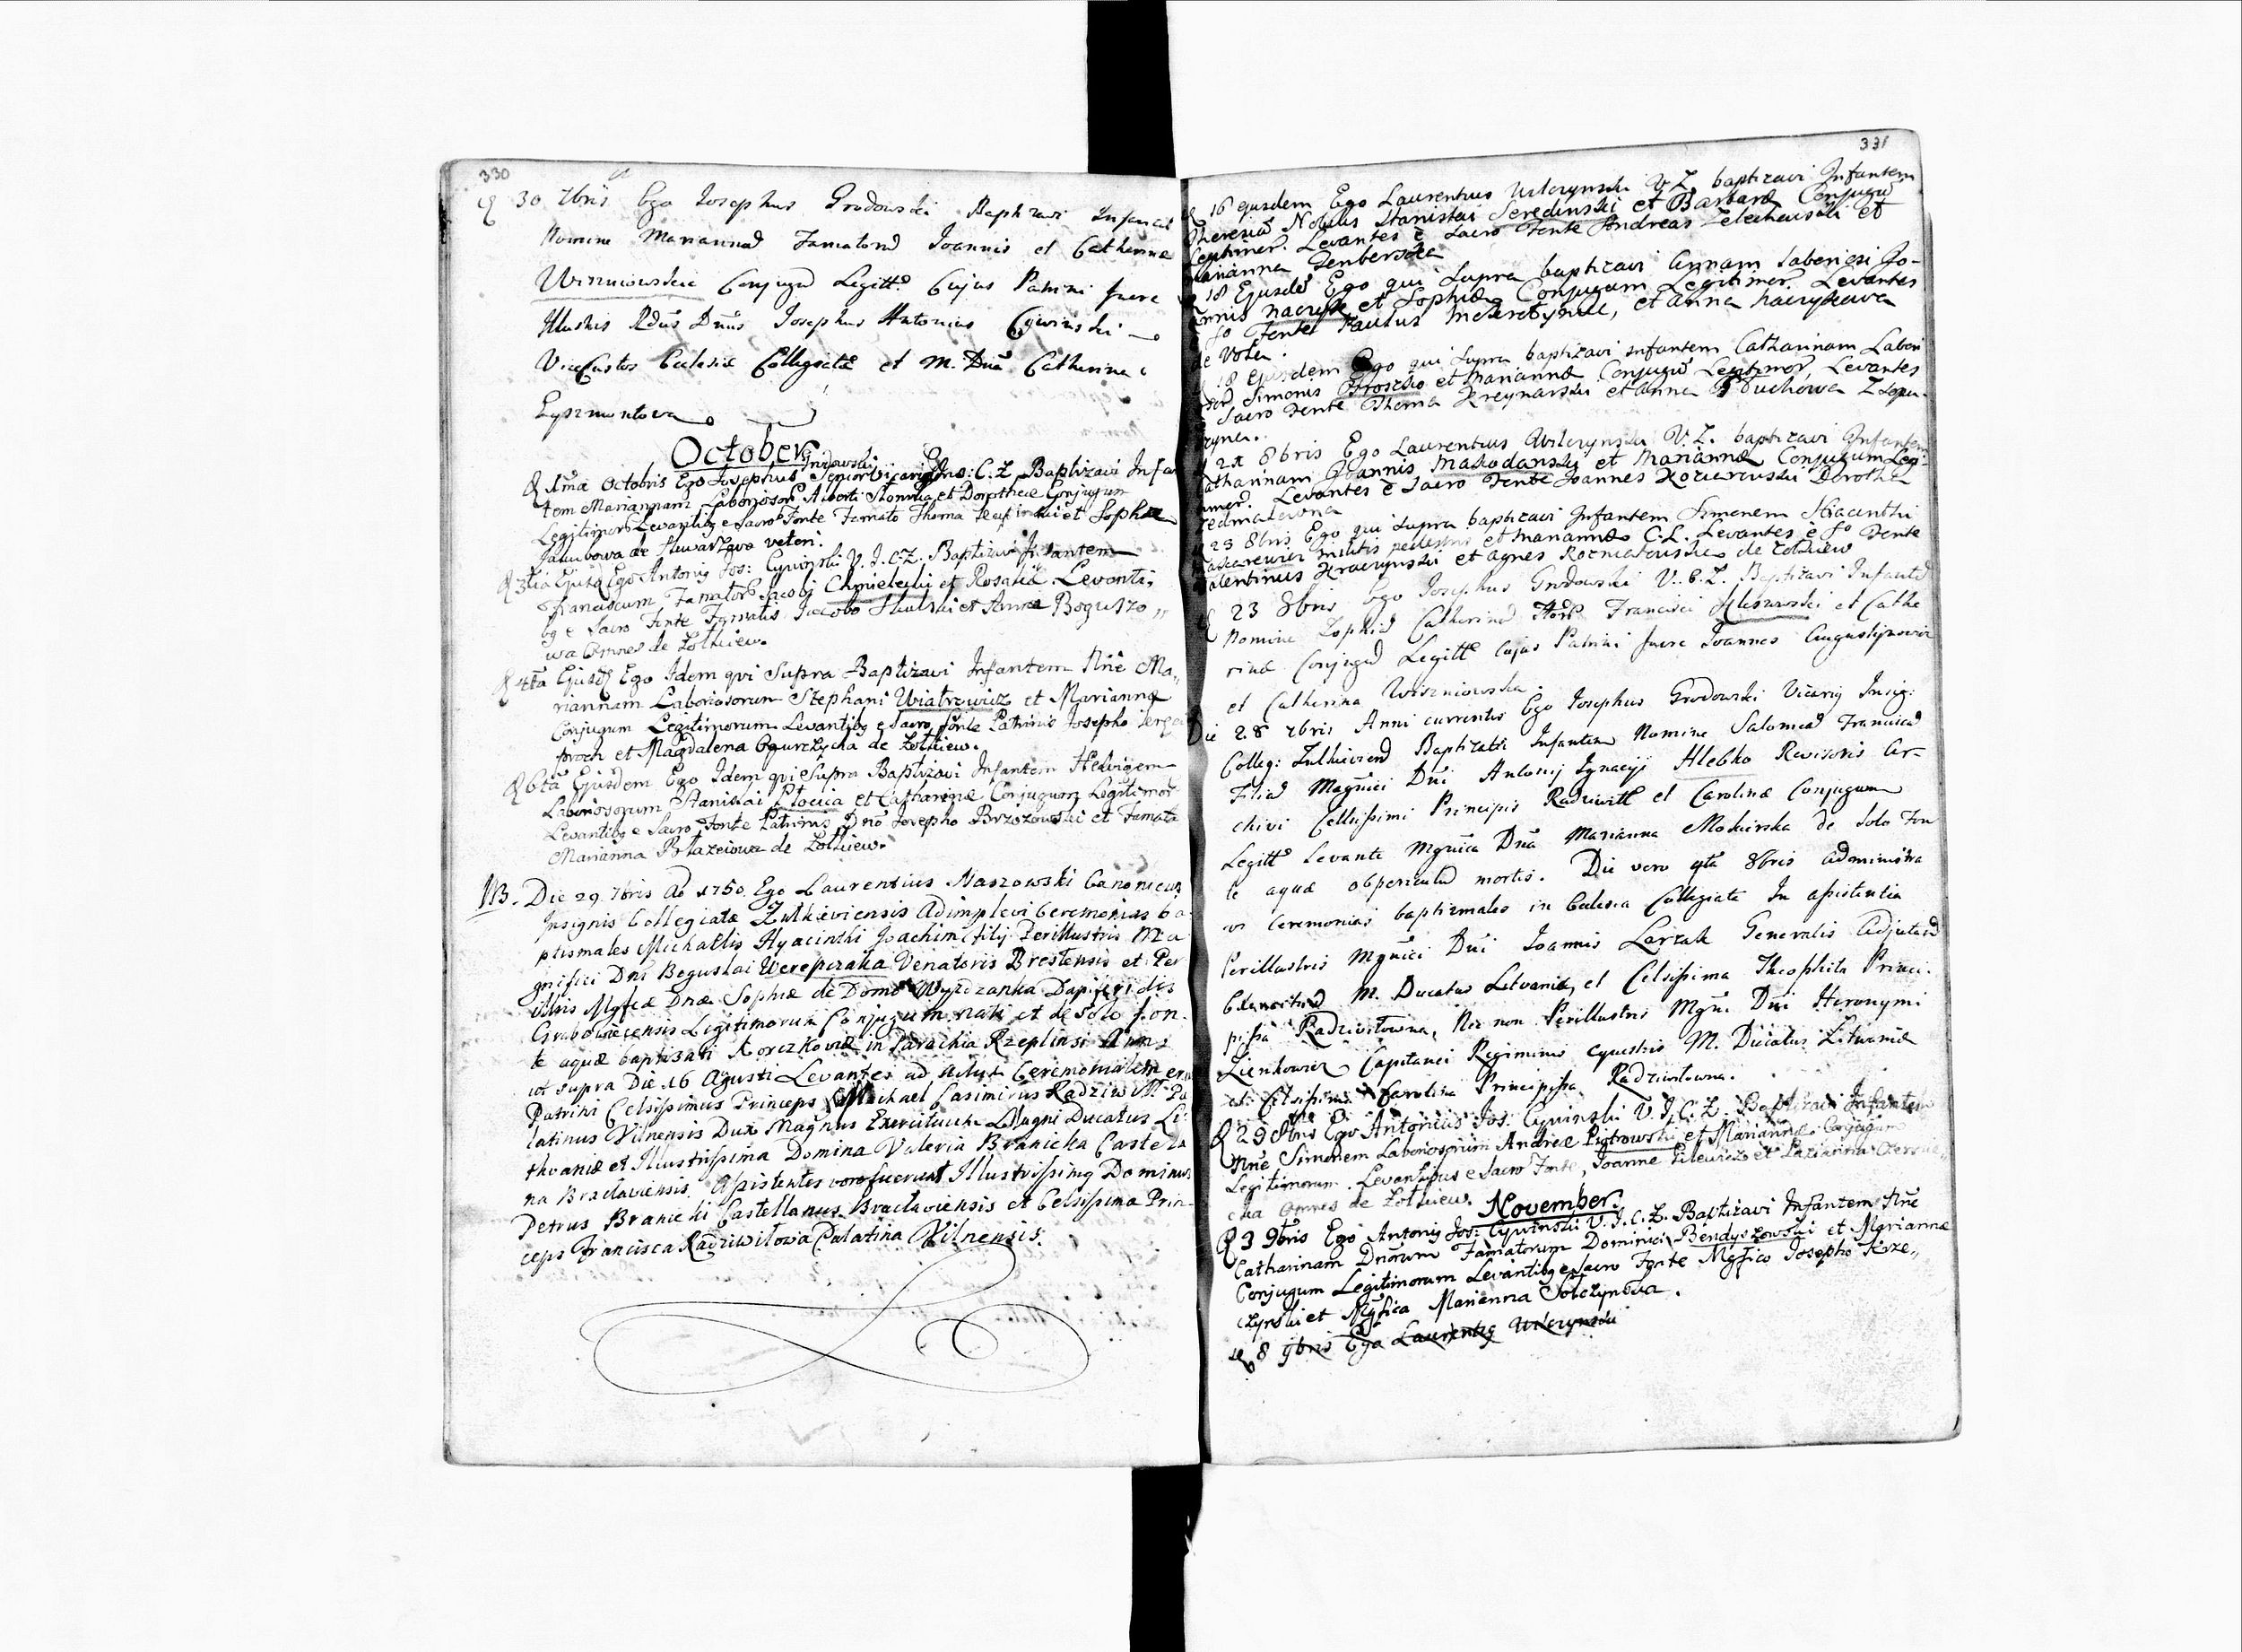 330
30 7bris Ego Josephus Grodowski Baptizavi Infant
Nomine Mariannã Famatorũ Joannis et Catherinæ
Wiszniowskie Conjugũ Legitt. Cujus Patrini fuere
Illustris Rdũs Dnũs Josephus Antonius Cywinski
ViceCustos Ecclesiæ Collegiatæ et M. Dnã Catherina
Eyszmontova
October
1mã Octobris Ego Josephus Grodowski Senior Vicarig Ins: C: Z Baptizavi Infan
tem Mariannam Laboriosorũ Alberti Slomnia et Dorotheæ Conjugum
Legitimorũ Levantibg e Sacro Fonte Famato Thoma et Sophia
Jakubowa de Skwarzava veteri.
3tia Ejusd Ego Antonig Jos: Cywinski V. I. C. Z. Baptizavi Infantem
Franciscum Famatorũ Jacobi Chmielecki et Rosaliæ. Levanti,,
bg e Sacro Fonte Famatis Jacobo Skulski et Anna Boguszo,,
wa Omnes de Zolkiew.
4ta Ejusd Ego Idem qvi Supra Baptizavi Infantem Nñe Ma,,
riannam Laboriosorum Stephani Wiatrowicz et Mariannæ
Conjugum Legitimorum Levantibg e Sacro Fonte Patrinis Josepho
proch et Magdalena Ogurczycha de Zolkiew.
6tã Ejusdem Ego Idem qvi Supra Baptizavi Infantem Hedvigem
Laboriosorum Stanislai Plocica et Catharinæ Conjugum Legitimor
Levantibg e Sacro Fonte Patrinis Dno Josepho Brzozowski et Famata
Marianna Blazeiowa de Zolkiew.
NB. Die 29. 7bris Ao 1750. Ego Laurentius Naszowski Canonicus
Insignis Collegiatæ Zulkieviensis Adimplevi Ceremonias ba
ptismales Michaelis Hyacinthi Joachim filij Perillustris Ma
gnifici Dni Boguslai Wereszczaka Venatoris Brestensis et Per
illris Mgfcæ Dnæ Sophiæ de Domo Wydzanka Dapiferidis
Grabowiecensis Legitimorum Conjugum nati et de Solo fon
te aquæ baptisati Korczkoviæ in Parochia Rzeplinsi Anno
ut supra Die 16 Agusti Levantes ad Actus Ceremonialem erant
Patrini Celsissimus Princeps Michael Casimirus Radziwill Pa
latinus Vilnensis Dux Magnus Exercituum Magni Ducatus Li
thvaniæ et Illustrissima Domina Valeria Branicka Castella
na Braclaviensis. Assistentes vero fuerunt Illustrissimg Dominus
Petrus Branicki Castellanus Braclaviensis et Celsissima Prin
ceps Francisca Radziwilowa Palatina Vilnensis.
331
16 ejusdem Ego Laurentius Wilczynski V. Z. baptizavi Infantem
Theresiã Nobilis Stanislai Seredinski et Barbaræ Conjugũ
Legitimor. Levantes è Sacro Fonte Andreas Zelechowski et
Marianna Denberska
18 Ejusdẽ Ego qui Supra baptizavi Annam laboriosi Jo-
annis Naczyk et Sophiæ Conjugum Legitimor. Levantes
So Fonte Paulus et Anna Naczykowa
de Vola.
18 Ejusdem Ego qui Supra baptizavi infantem Catharinam Labori
Simonis Hroszko et Mariannæ Conjugũ Legitimor, Levantes
Sacro Fonte Thoma Krzynarski et Anna Duchowa Z
21 8bris Ego Laurentius Wilczynski V. Z. baptizavi Infantem
Catharinam Joannis Makodanski et Mariannæ Conjugum Legi-
timor. Levantes è Sacro Fonte Joannes Koziarowski Dorothea
23 8bris Ego qui Supra baptizavi Infantem Simonem Hiacinthi
militis pedestris et Mariannæ C. L. Levantes è So Fonte
Valentinus Kraczynski et Agnes de Zolkiew
23 8bris Ego Josephus Grodowski V. C. Z. Baptizavi Infantẽ
Nomine Sophiã Catherinã Francisci et Cathe
rinæ Conjugũ Legitt Cujus Patrini fuere Joannes Augustynowicz
et Catherina Wiszniowska.
Die 28 7bris Anni currentis Ego Josephus Grodowski Vicarig Insig:
Colleg: Zulkieviens Baptizavi Infantem Nomine Salomeã Franciscã
Filiã Magnifici Dni Antonij Ignacyi Hlebko Revisoris Ar-
chivi Celsissimi Principis Radziwill et Carolinæ Conjugum
Legitt Levante Mgnica Dnã Marianna Mokierska de Solo Fon
te aquæ ob periculũ mortis. Die vero 9tã 8bris administra
vi Ceremonias baptismales in Ecclesia Collegiata In assistentia
Perillustris Mgnici Dni Joannis Larzak Generalis Adjutan
M. Ducatus Litvaniæ, et Celsissima Theophila Princi-
pissa Radziwilowna, Nec non Perillustris Mgni Dni Hieronymi
Zienkowicz Capitanei Regiminis equestris M. Ducatus Litvaniæ
et Celsissima Carolina Principissa Radziwilowna.
29 8bris Ego Antonius Jos. Cywinski V. I. C. Z. Baptizavi Infantem
Nñe Simonem Laboriosorum Andreæ Piotrowski et Mariannæ Conjugum
Legitimorum. Levantibus e Sacro Fonte, Joanne Pilewicz et Marianna
cka Omnes de Zolkiew.
November.
3 9bris Ego Antonig Jos: Cywinski V. I. C. Z. Baptizavi Infantem Nñe
Catharinam Dnorum Famatorum Dominici Bendyszowski et Mariannæ
Conjugum Legitimorum Levantibg e Sacro Fonte Mgfico Josepho Krze,,
czynski et Mgfica Marianna Sobczynova.
8 9bris Ego Laurentig Wilczynski